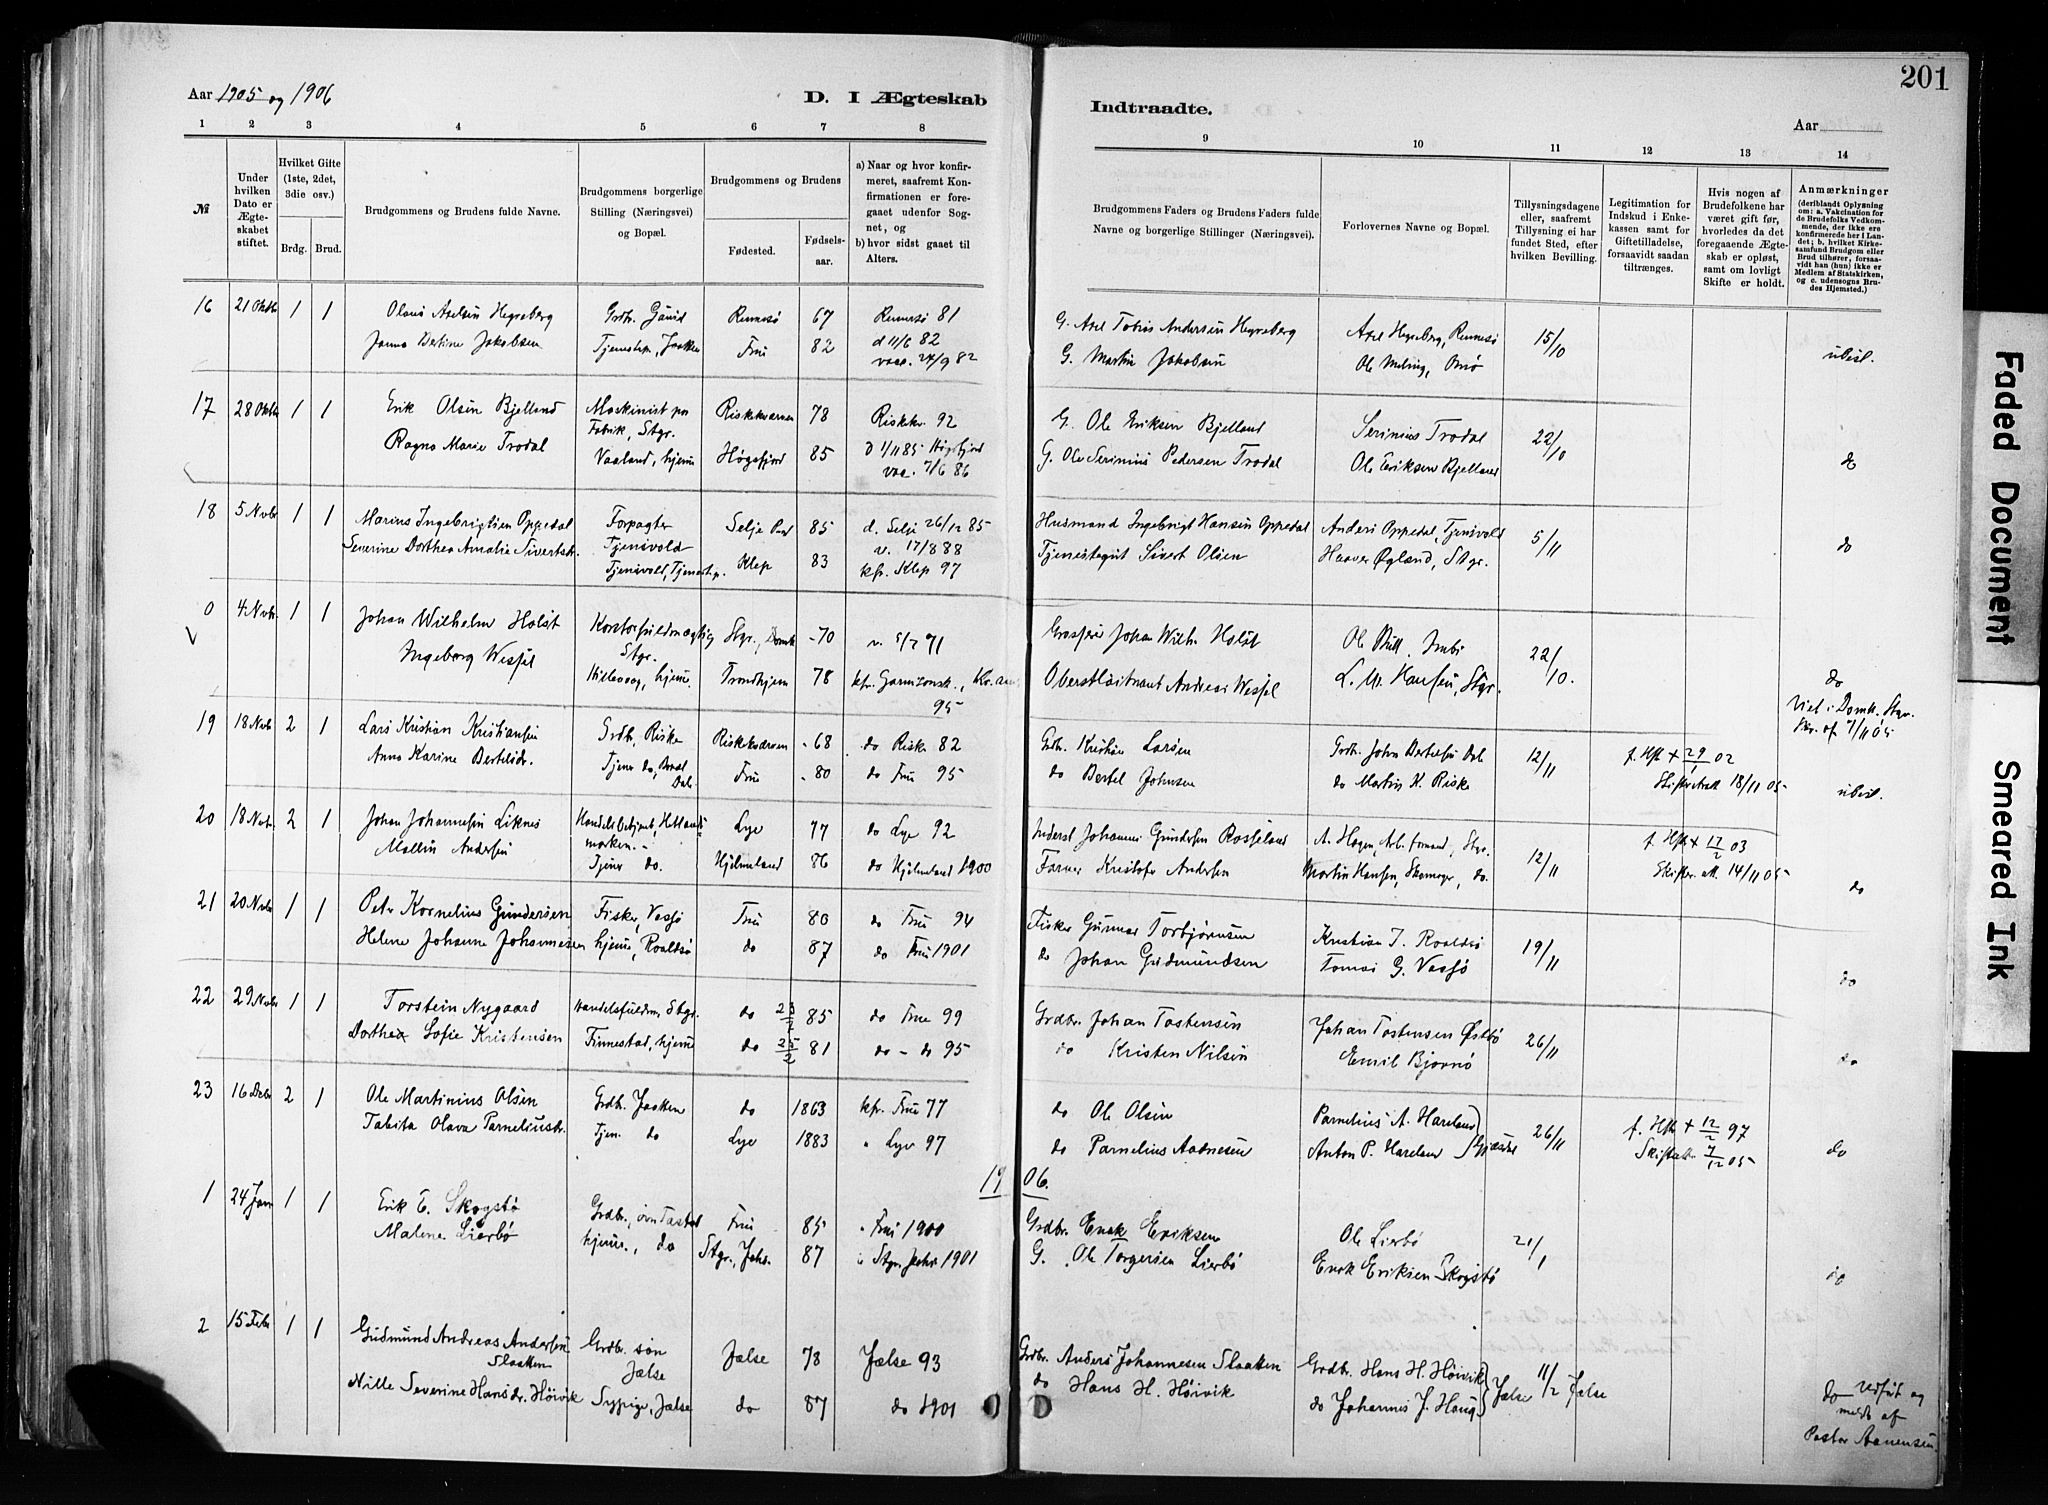 201
Aar 1905 og 1906
D. I Ægteskab
Indtraadte.
Aar
1 2 3 4 5 6 7 8
9 10 11 12 13 14
№
Under hvilken Dato er Ægteskabet stiftet.
Hvilket Gifte (1ste, 2det, 3die osv.)
Brdg. Brud.
Brudgommens og Brudens fulde Navne.
Brudgommens borgerlige Stilling (Næringsvei) og Bopæl.
Brudgommens og Brudens
Fødested.
Fødselsaar.
a) Naar og hvor konfirmeret, saafremt Konfirmationen er foregaaet udenfor Sognet, og
b) hvor sidst gaaet til Alters.
Brudgommens Faders og Brudens Faders fulde Navne og borgerlige Stillinger (Næringsvei).
Forlovernes Navne og Bopæl.
Tillysningsdagene eller, saafremt Tillysning ei har fundet Sted, efter hvilken Bevilling.
Legitimation for Indskud i Enkekassen samt for Giftetilladelse, forsaavidt saadan tiltrænges.
Hvis nogen af Brudefolkene har været gift før, hvorledes da det foregaaende Ægteskab er opløst, samt om lovligt Skifte er holdt.
Anmærkninger (deriblandt Oplysning om: a. Vakcination for de Brudefolks Vedkommende, der ikke ere konfirmerede her i Landet; b. hvilket Kirkesamfund Brudgom eller Brud tilhører, forsaavidt han (hun) ikke er Medlem af Statskirken, og c. udensogns Brudes Hjemsted.)
16 21 Oktbr 1 1 Olaus Axelsen Hegreberg Grdbr. Gausel Rennesø 67 Rennesø 81 G. Axel Tobias Andersen Hegreberg Axel Hegreberg, Rennesø 15/10
Tjenestep., Jaatten Frue 82 d 11/6 82 G. Martin Jakobsen Ole Meling,
24/9 82
17 28 Oktbr 1 1 Erik Olsen Bjelland Maskinist paa Riskekværnen 78 Riske 92 G. Ole Eriksen Bjelland Serinius Trodal 22/10
Fabrik, Stgr.
Ragna Marie Trodal Vaaland, hjeme Høgsfjord 85 D 1/11 85 Høgsfjord G. Ole Serinius Pedersen Trodal Ole Eriksen Bjelland do
7/6 86
18 5 Nvbr 1 1 Marius Ingebrigtsen Oppedal Forpagter Selje 85 d. Selje 26/12 85 Husmand Ingebrigt Hansen Oppedal Anders Oppedal, Tjensvold 5/11 do
Severine Dorthea Amalie Sivertsdr. Tjensvold v. 17/8 88
Tjensvold, Tjenestep. Klep 83 kfr. Klep 97 Tjenestegut Sivert Olsen Haaver Øgland, Stgr.
0 4 Nvbr. 1 1 Johan Wilhelm Holst Kontorfuldmægtig Stgr., Domk 70 71 Grosserer Johan Wilh. Holst Ole Bull 22/10.
Stgr.
Ingeborg Wessel Hillevaag, hjeme. Trondhjem 78 kfr. Garnizonsk., Oberstløitnant Andreas Wessel Stgr. do
95
Viet i Domk. Stgr.
19 18 Nvbr 2 1 Lars Kristian Kristiansen Grdb, Riske Riskekværnen 68 do Riske 82 Grdb. Kristian Larsen Grdb. John Bertelsen Dale 12/11 02
Anna Karine Bertelsdr. Tjener do, Dale Frue 80 do Frue 95 do Bertel Johnsen do Martin K. Riske 18/11 05
20 18 Nvbr. 2 1 Johan Johannesen Liknes Handelsbetjent, Hetlandsmarken Lye 77 do Lye 92 Inderst Johannes Gundersen Rosseland A. Hagen, Stgr. 12/11 17/2 03
Mallin Andersen Tjener do. Hjelmeland 86 do Hjelmeland 1900 Farver Kristofer Andersen Martin Hansen, Skomager, do. 14/11 05 do
21 20 Nvbr 1 1 Peter Kornelius Gundersen Fisker, Vassø Frue 80 do Frue 94 Fisker Gunnar Torbjørnsen Kristian T. Roaldsø 19/11
Helene Johanne Johannesen hjeme, Roaldsø do 87 do Frue 1901 do Johan Gudmundsen Tomas G. Vassø do
22 29 Nvbr 1 1 Torstein Nygaard Handelsfuldm, Stgr. do 85 do Frue 99 Grdbr. Johan Tostensen Johan Tostensen Østbø 26/11
Dorthea Sofie Kristensen Finnestad, hjeme do 25/2 81 do - do 95 do Kristen Nilsen Emil Bjørnø do
23 16 Decbr 2 1 Ole Martinius Olsen Grdb. Jaatten do 1863 kfr. Frue 77 do Ole Olsen Parnelius A. Hareland 26/11 12/2 97
Tabita Olava Parneliusdr. Tjen. do Lye 1883 " Lye 97 do Parnelius Aadnesen Anton P. Hareland Gjæsdal 7/12 05 do
1906.
1 24 Jan 1 1 Erik E. Skogstø Grdbr., øvre Tasta Frue 85 " Frue 1900 Grdbr. Enok Eriksen Ole Lierbø 21/1
Malene Lierbø hjeme., do Stgr., Johs. 87 " Stgr. Johs 1901 G. Ole Torgersen Lierbø Enok Eriksen Skogstø do
2 15 Febr 1 1 Gudmund Andreas Andersen Slaatten Grdbr. søn Jælse Jælse 78 Jælse 93 Grdbr. Anders Johannesen Slaatten Grdbr. Hans H. Høivik 11/2 Jælse
Nille Severine Hansdr. Høivik Sypige, Jælse do 87 do 1901 do Hans H. Høivik do Johannes J. Haug Jælse do
og
meldt af
Pastor Aanensen.
Faded Document
Smeared Ink